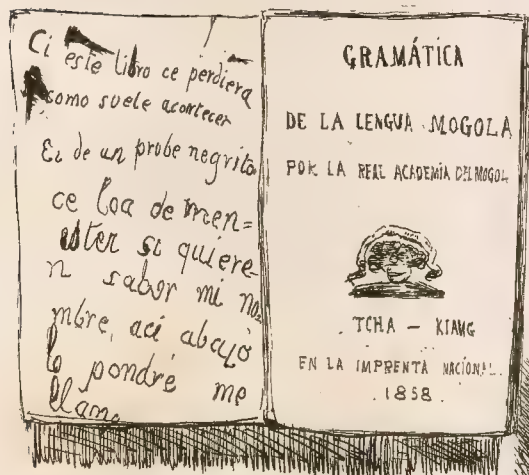 Ci este libro ce perdiera
como suele acontecer
Es de un probe negrito
ce loa de men=
ester si quiere-
n saber mi no-
mbre, aci abajo
lo pondré me
llamo
GRAMÁTICA
DE LA LENGUA MOGOLA
POR LA REAL ACADEMIA DEL MOGOL
TCHA - KIANG
EN LA IMPRENTA NACIONAL.
.1858.